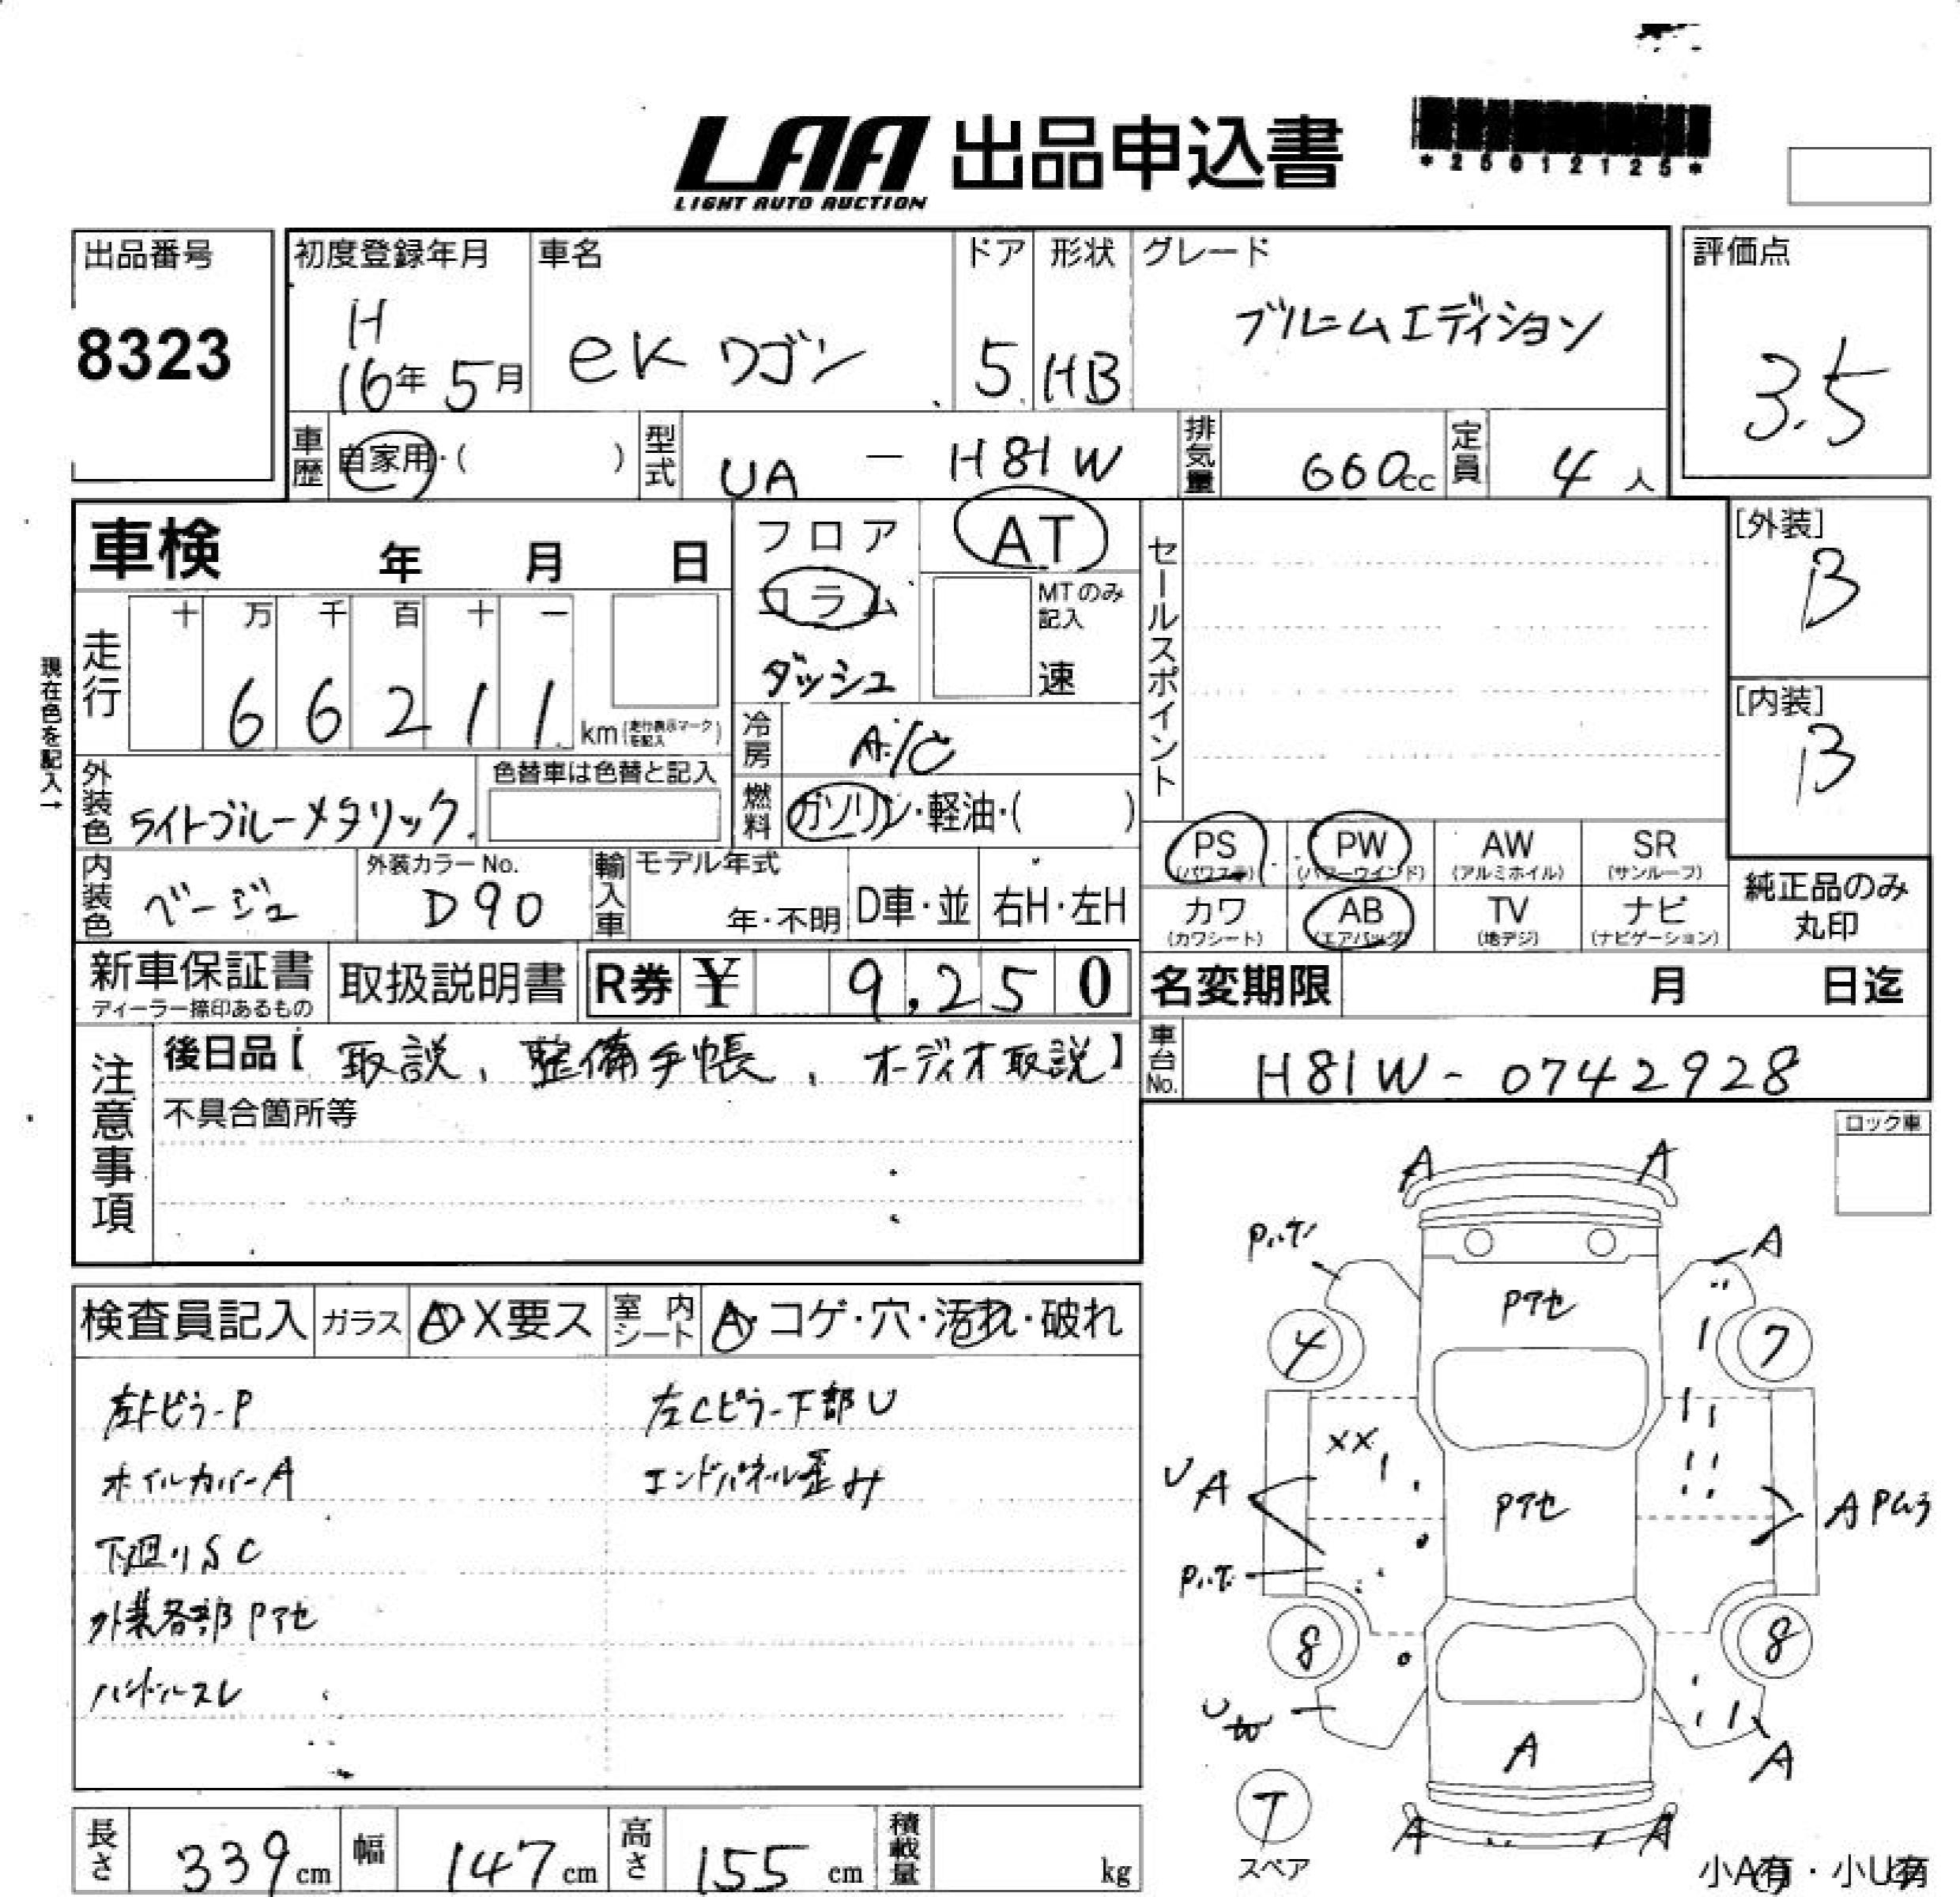 LAA 出品申込書
LIGHT AUTO AUCTION
*25012125*
出品番号
8323
初度登録年月
H
16年 5月
車名
eK ワゴン
ドア
5
形状
HB
グレード
ブルームエディション
評価点
3.5
車歴
自家用・( )
型式
UA - H81W
排気量
660cc
定員
4人
車検 年 月 日
走行
十 万 千 百 十 一
6 6 2 1 1
km(走行表示マークを記入)
現在色を記入→
フロア
コラム
ダッシュ
AT
MTのみ記入
速
冷房
A/C
燃料
ガソリン・軽油・( )
セールスポイント
[外装]
B
[内装]
B
外装色
ライトブルーメタリック
色替車は色替と記入
内装色
ベージュ
外装カラーNo.
D90
輸入車
モデル年式
年・不明
D車・並
右H・左H
PS (パワステ)
PW (パワーウインド)
AW (アルミホイル)
SR (サンルーフ)
カワ (カワシート)
AB (エアバッグ)
TV (地デジ)
ナビ (ナビゲーション)
純正品のみ
丸印
新車保証書
ディーラー捺印あるもの
取扱説明書
R券 ¥ 9,250
名変期限 月 日迄
車台No.
H81W-0742928
注意事項
後日品【 取説、整備手帳、オーディオ取説】
不具合箇所等
ロック車
検査員記入
ガラス
A・X要ス
室内シート
A・コゲ・穴・汚れ・破れ
ホイルカバーA
下廻りSC
外装各部Pアセ
ハンドルスレ
左Cピラー下部U
エンドパネル歪み
A
A
A
Pアセ
4
7
XX
UA
Pアセ
A Pムラ
8
8
U
A
A
T
スペア
A
A
小A有・小U有
長さ
339cm
幅
147cm
高さ
155cm
積載量
kg